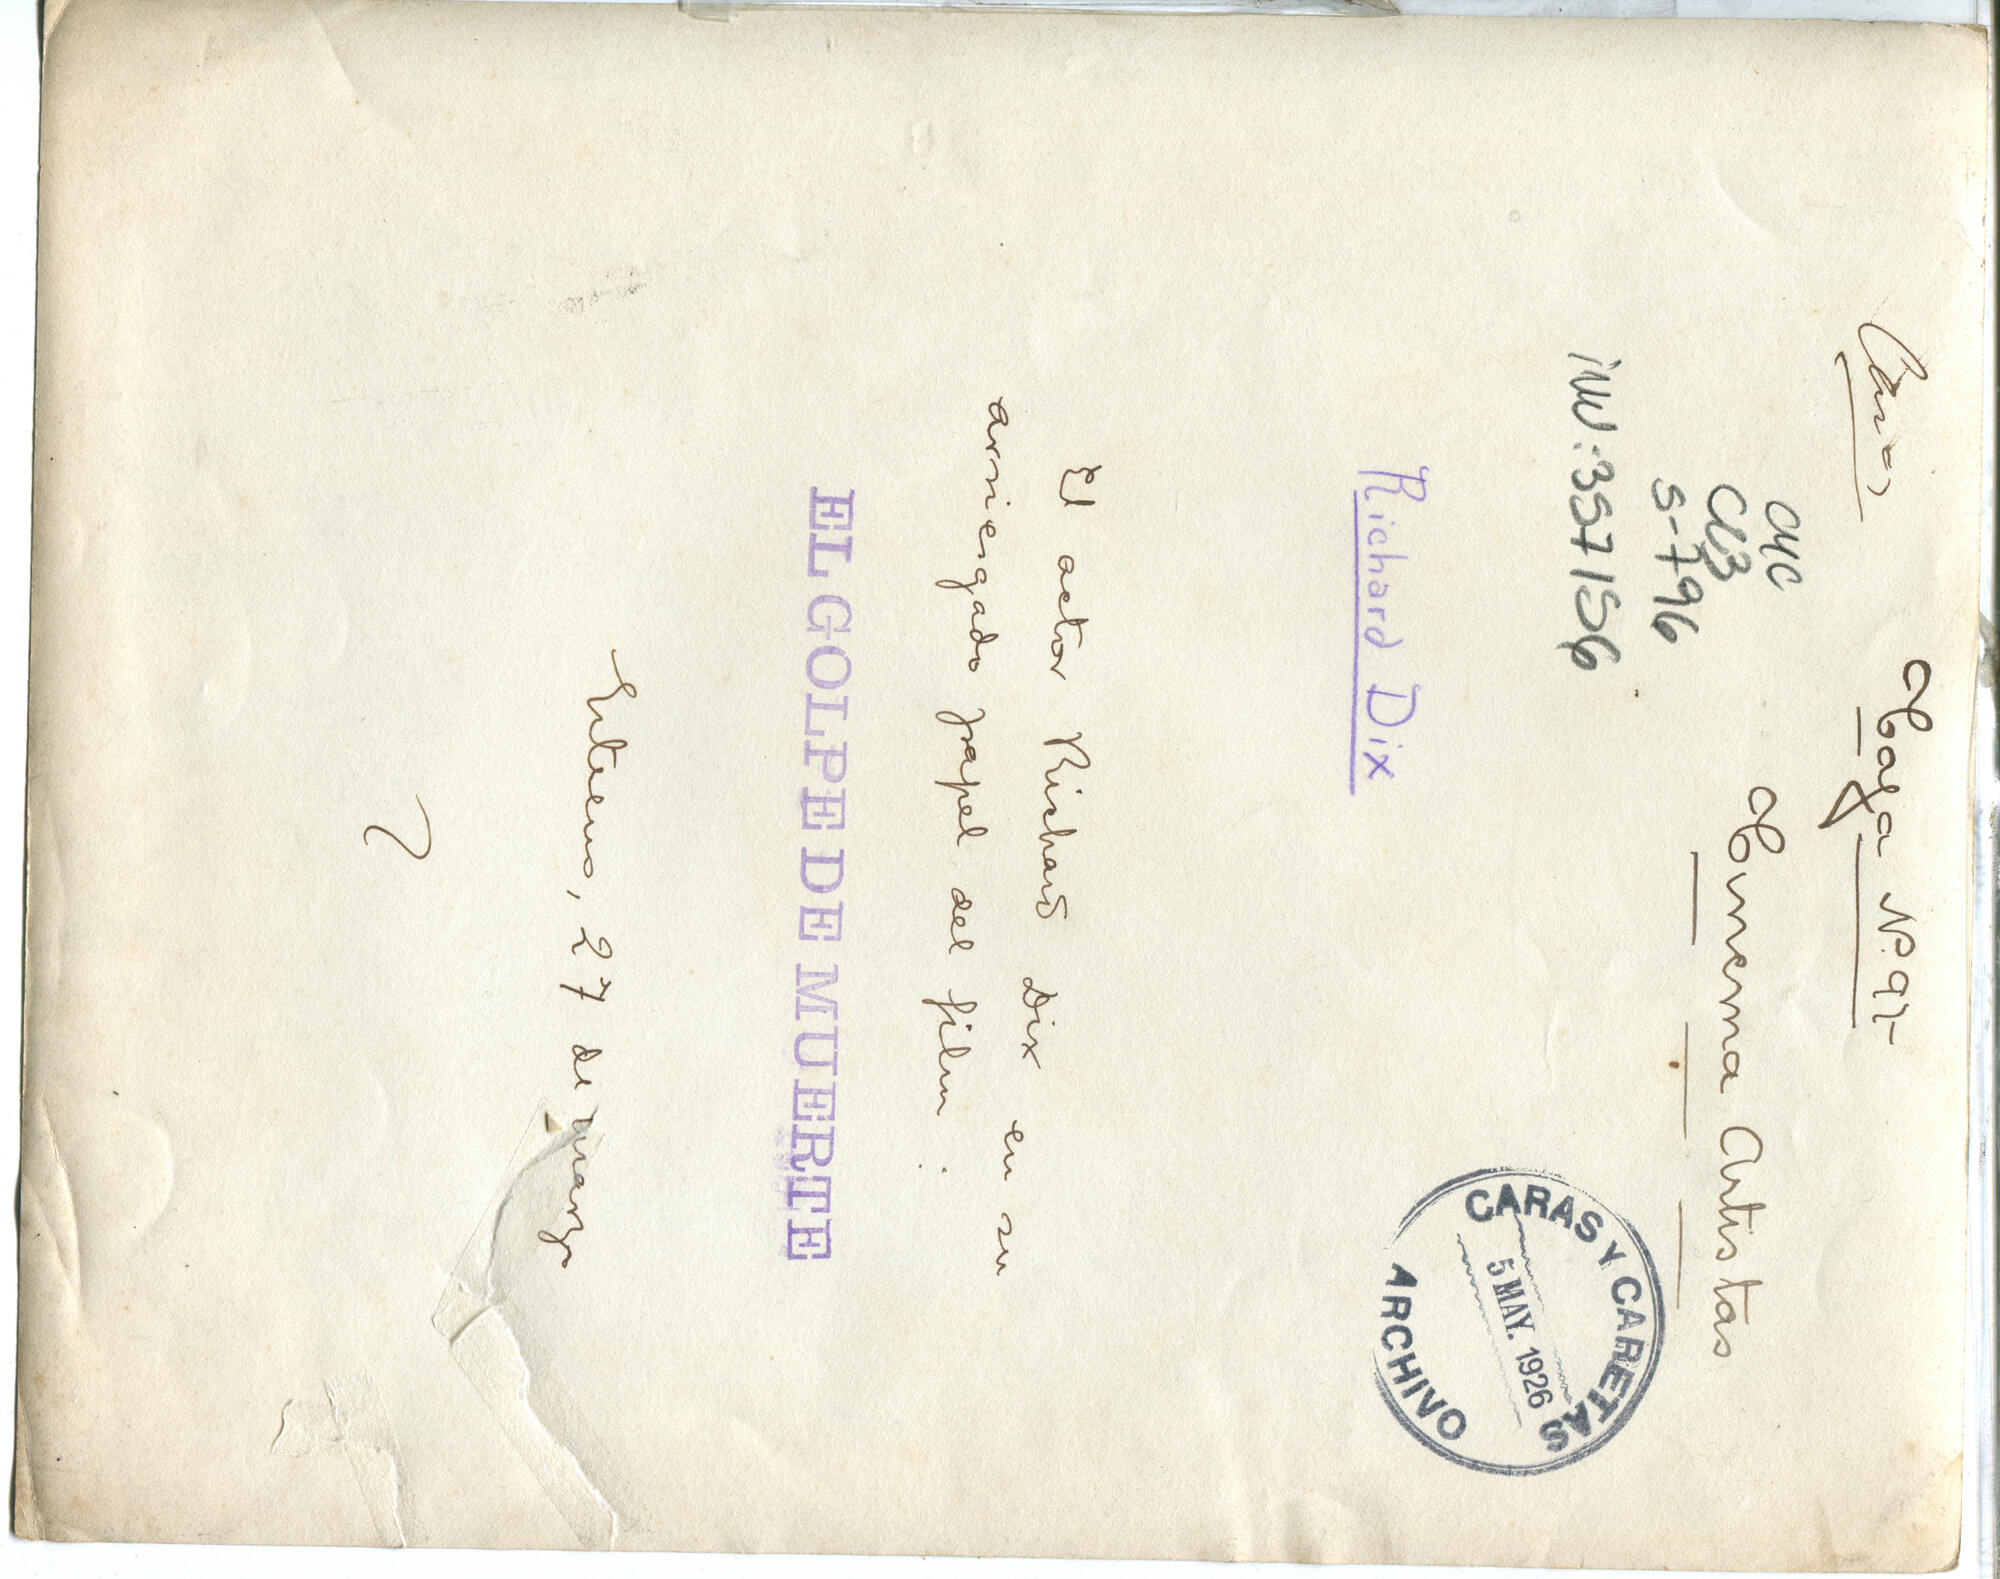 Caja Nº 97
Cinema Artistas
CARAS Y CARETAS
5 MAY. 1926
ARCHIVO
S-796
inv: 357156
Richard Dix
El actor Richard Dix en su
arriesgado papel del film:
EL GOLPE DE MUERTE
Estreno, 27 de marzo